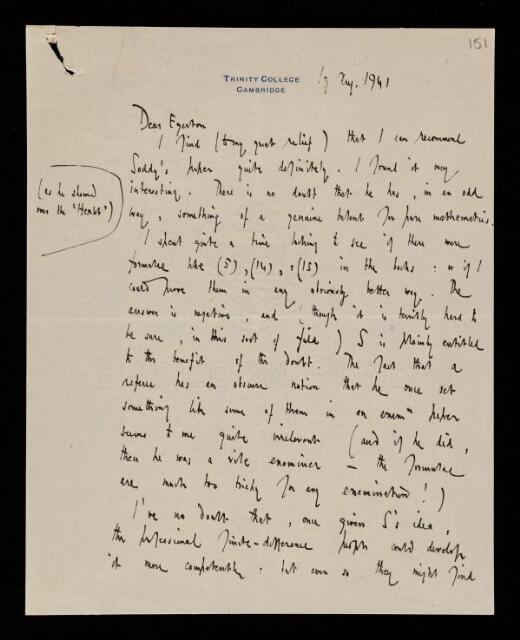 151
TRINITY COLLEGE
CAMBRIDGE
19 Aug. 1941
Dear Egerton
I find (to my great relief) that I can recommend
Soddy's paper quite definitely. I found it very
interesting. There is no doubt that he has, in an odd
(as he showed
over the 'Hexlet')
way, something of a genuine talent for pure mathematics.
I spent quite a time looking to see if there were
formulae like (5), (14), + (15) in the books : or if I
could prove them in any obviously better way. The
answer is negative, and (though it is terribly hard to
be sure, in this sort of field) S is plainly entitled
to the benefit of the doubt. The fact that a
referee has an obscure notion that he once set
something like some of them in an exam" paper
seems to me quite irrelevant (and if he did,
then he was a vile examiner – the formulae
are much too tricky for any examination!)
I've no doubt that, once given S's idea,
the professional finite-difference people could develop
it more competently : but even so they might find